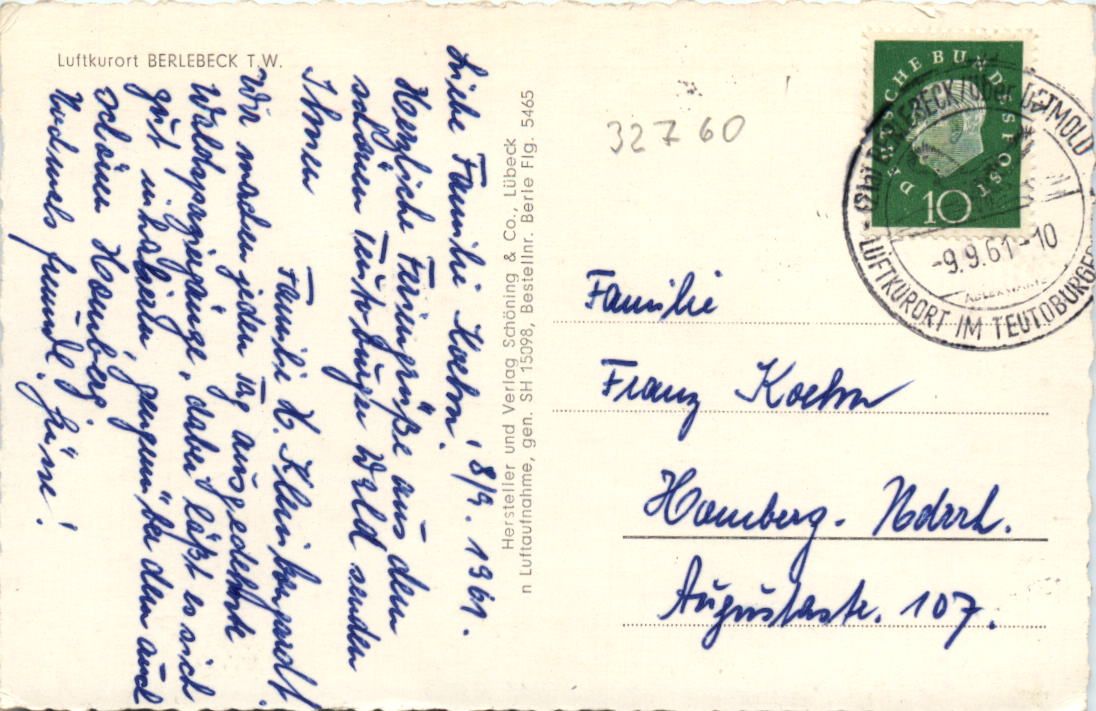 Luftkurort BERLEBECK T.W.
8/9. 1961.
Liebe Familie Koehn!
Herzliche Feriengrüße aus dem
schönen Teutoburger Wald senden
Ihnen
Familie H. Kleinbongardt
Wir machen jeden Tag ausgedehnte
Waldspaziergänge, dabei läßt es sich
gut
bei dem auch
schönen Homberg.
Nochmals freundl. Grüsse!
Hersteller und Verlag Schöning & Co., Lübeck
n Luftaufnahme, gen. SH 15098, Bestellnr. Berle Flg. 5465
32760
DEUTSCHE BUNDESPOST
10
BERLEBECK (über DETMOLD
-9.9.61-10
LUFTKURORT IM TEUTOBURGER
Familie
Franz Koehn
Homberg. Ndrrh.
Augustastr. 107.